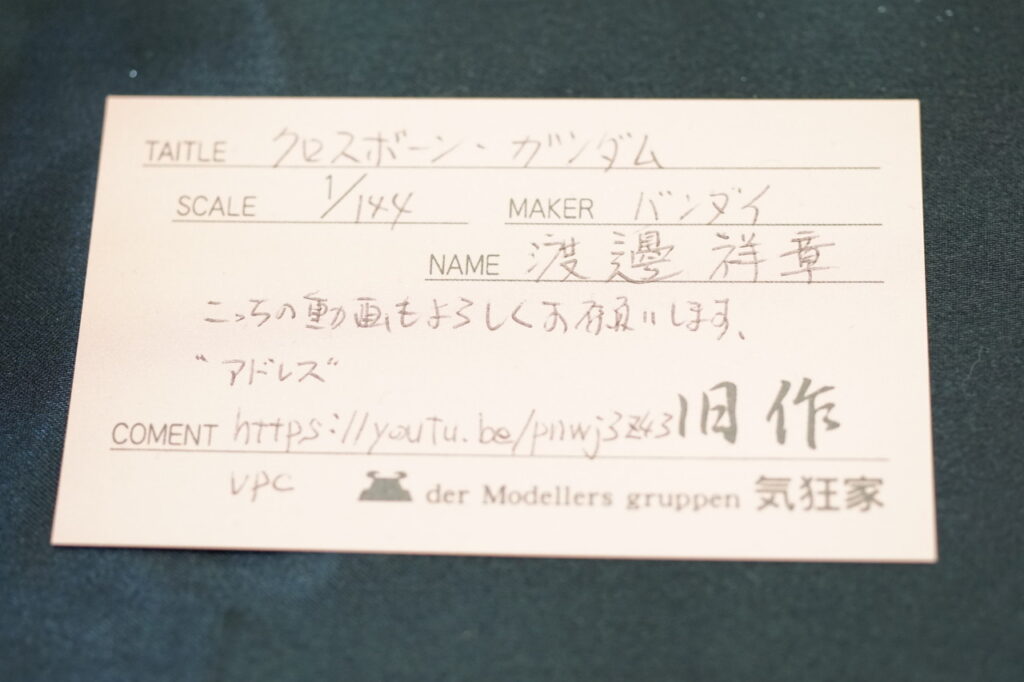 TAITLE クロスボーン・ガンダム
SCALE 1/144 MAKER バンダイ
NAME 渡邊 祥章
こっちの動画もよろしくお願いします、
"アドレス"
COMENT https://youtu.be/pnwj3z43 旧作
VPC der Modellers gruppen 気狂家